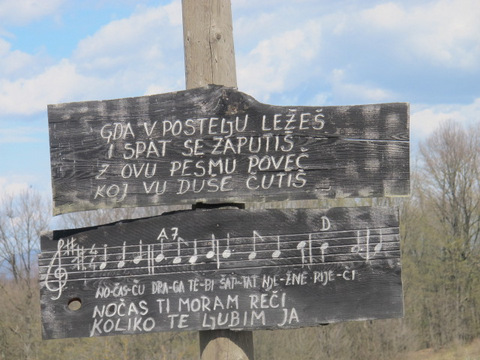 GDA V POSTELJU LEŽEŠ
I SPAT SE ZAPUTIŠ
Z OVU PESMU POVEČ
KOJ VU DUŠE ČUTIŠ
A7 D
NO-ČAS-ĆU DRA-GA TE-BI ŠAP-TAT NJE-ŽNE RIJE-ČI
NOČAS TI MORAM REČI
KOLIKO TE LJUBIM JA